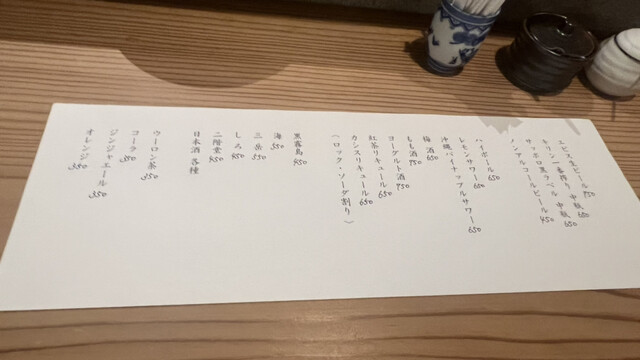 ヱビス生ビール 750
キリン一番搾り 中瓶 650
サッポロ黒ラベル 中瓶 650
ノンアルコールビール 450
ハイボール 650
レモンサワー 650
沖縄パイナップルサワー 650
梅酒 650
もも酒 750
ヨーグルト酒 750
紅茶リキュール 650
カシスリキュール 650
(ロック・ソーダ割り)
黒霧島 450
海 550
三岳 550
しろ 450
二階堂 450
日本酒 各種
ウーロン茶 350
コーラ 350
ジンジャエール 350
オレンジ 350